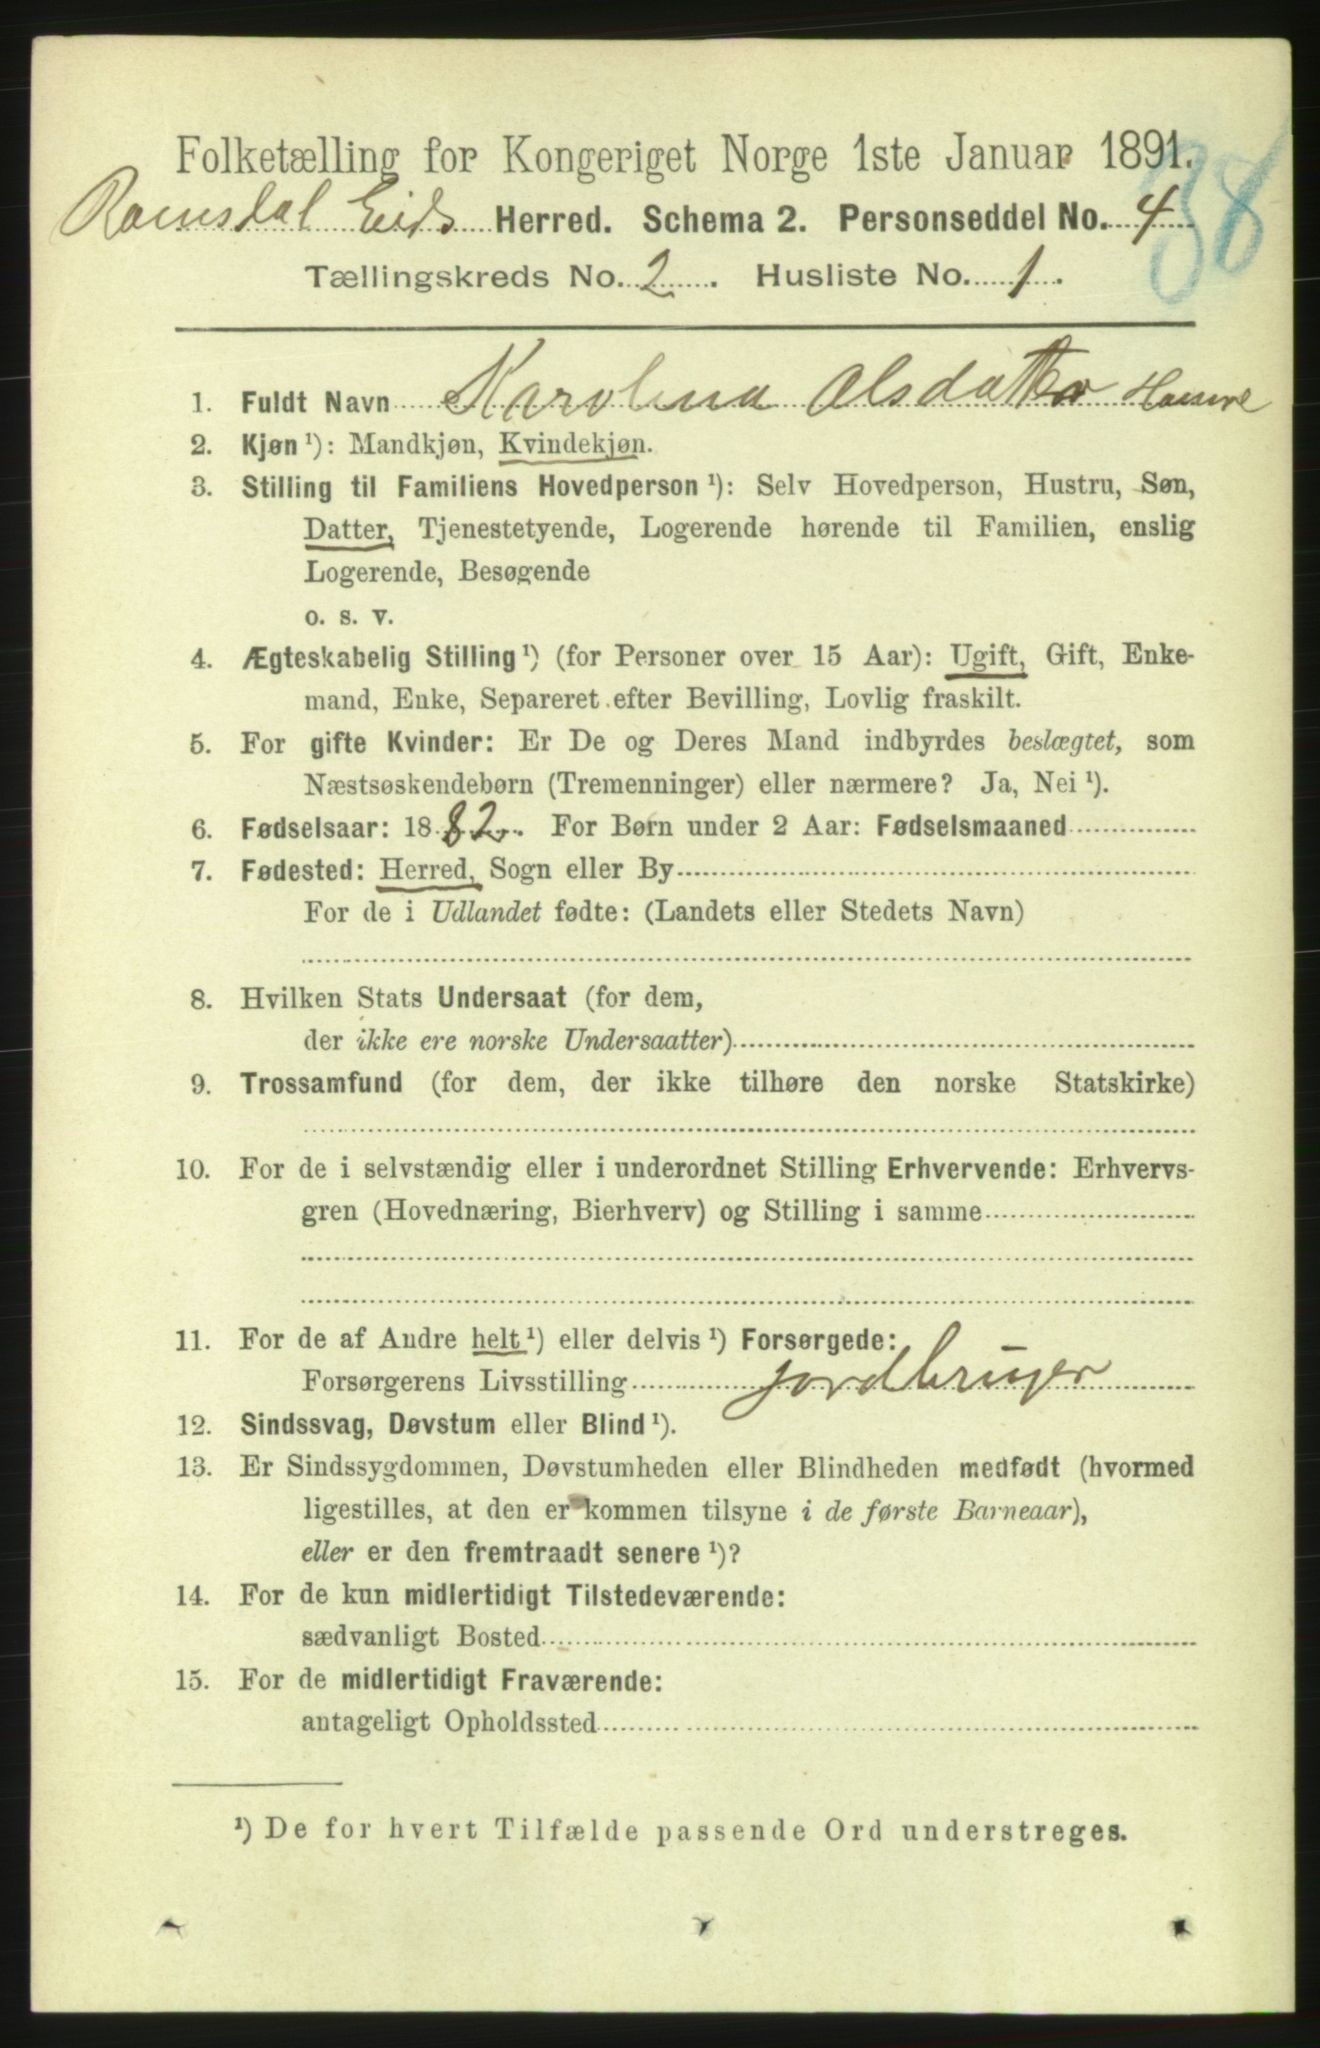 Folketælling for Kongeriget Norge 1ste Januar 1891.
38
Romsdal Eids Herred. Schema 2. Personseddel No. 4
Tællingskreds No. 2. Husliste No. 1.
1. Fuldt Navn Karolina Olsdatter
2. Kjøn ¹): Mandkjøn, Kvindekjøn.
3. Stilling til Familiens Hovedperson ¹): Selv Hovedperson, Hustru, Søn,
Datter, Tjenestetyende, Logerende hørende til Familien, enslig
Logerende, Besøgende
o. s. v.
4. Ægteskabelig Stilling ¹) (for Personer over 15 Aar): Ugift, Gift, Enke-
mand, Enke, Separeret efter Bevilling, Lovlig fraskilt.
5. For gifte Kvinder: Er De og Deres Mand indbyrdes beslægtet, som
Næstsøskendebørn (Tremenninger) eller nærmere? Ja, Nei ¹).
6. Fødselsaar: 1882. For Børn under 2 Aar: Fødselsmaaned
7. Fødested: Herred, Sogn eller By
For de i Udlandet fødte: (Landets eller Stedets Navn)
8. Hvilken Stats Undersaat (for dem,
der ikke ere norske Undersaatter)
9. Trossamfund (for dem, der ikke tilhøre den norske Statskirke)
10. For de i selvstændig eller i underordnet Stilling Erhvervende: Erhvervs-
gren (Hovednæring, Bierhverv) og Stilling i samme
11. For de af Andre helt ¹) eller delvis ¹) Forsørgede:
Forsørgerens Livsstilling jordbruger
12. Sindssvag, Døvstum eller Blind ¹).
13. Er Sindssygdommen, Døvstumheden eller Blindheden medfødt (hvormed
ligestilles, at den er kommen tilsyne i de første Barneaar),
eller er den fremtraadt senere ¹)?
14. For de kun midlertidigt Tilstedeværende:
sædvanligt Bosted
15. For de midlertidigt Fraværende:
antageligt Opholdssted
¹) De for hvert Tilfælde passende Ord understreges.